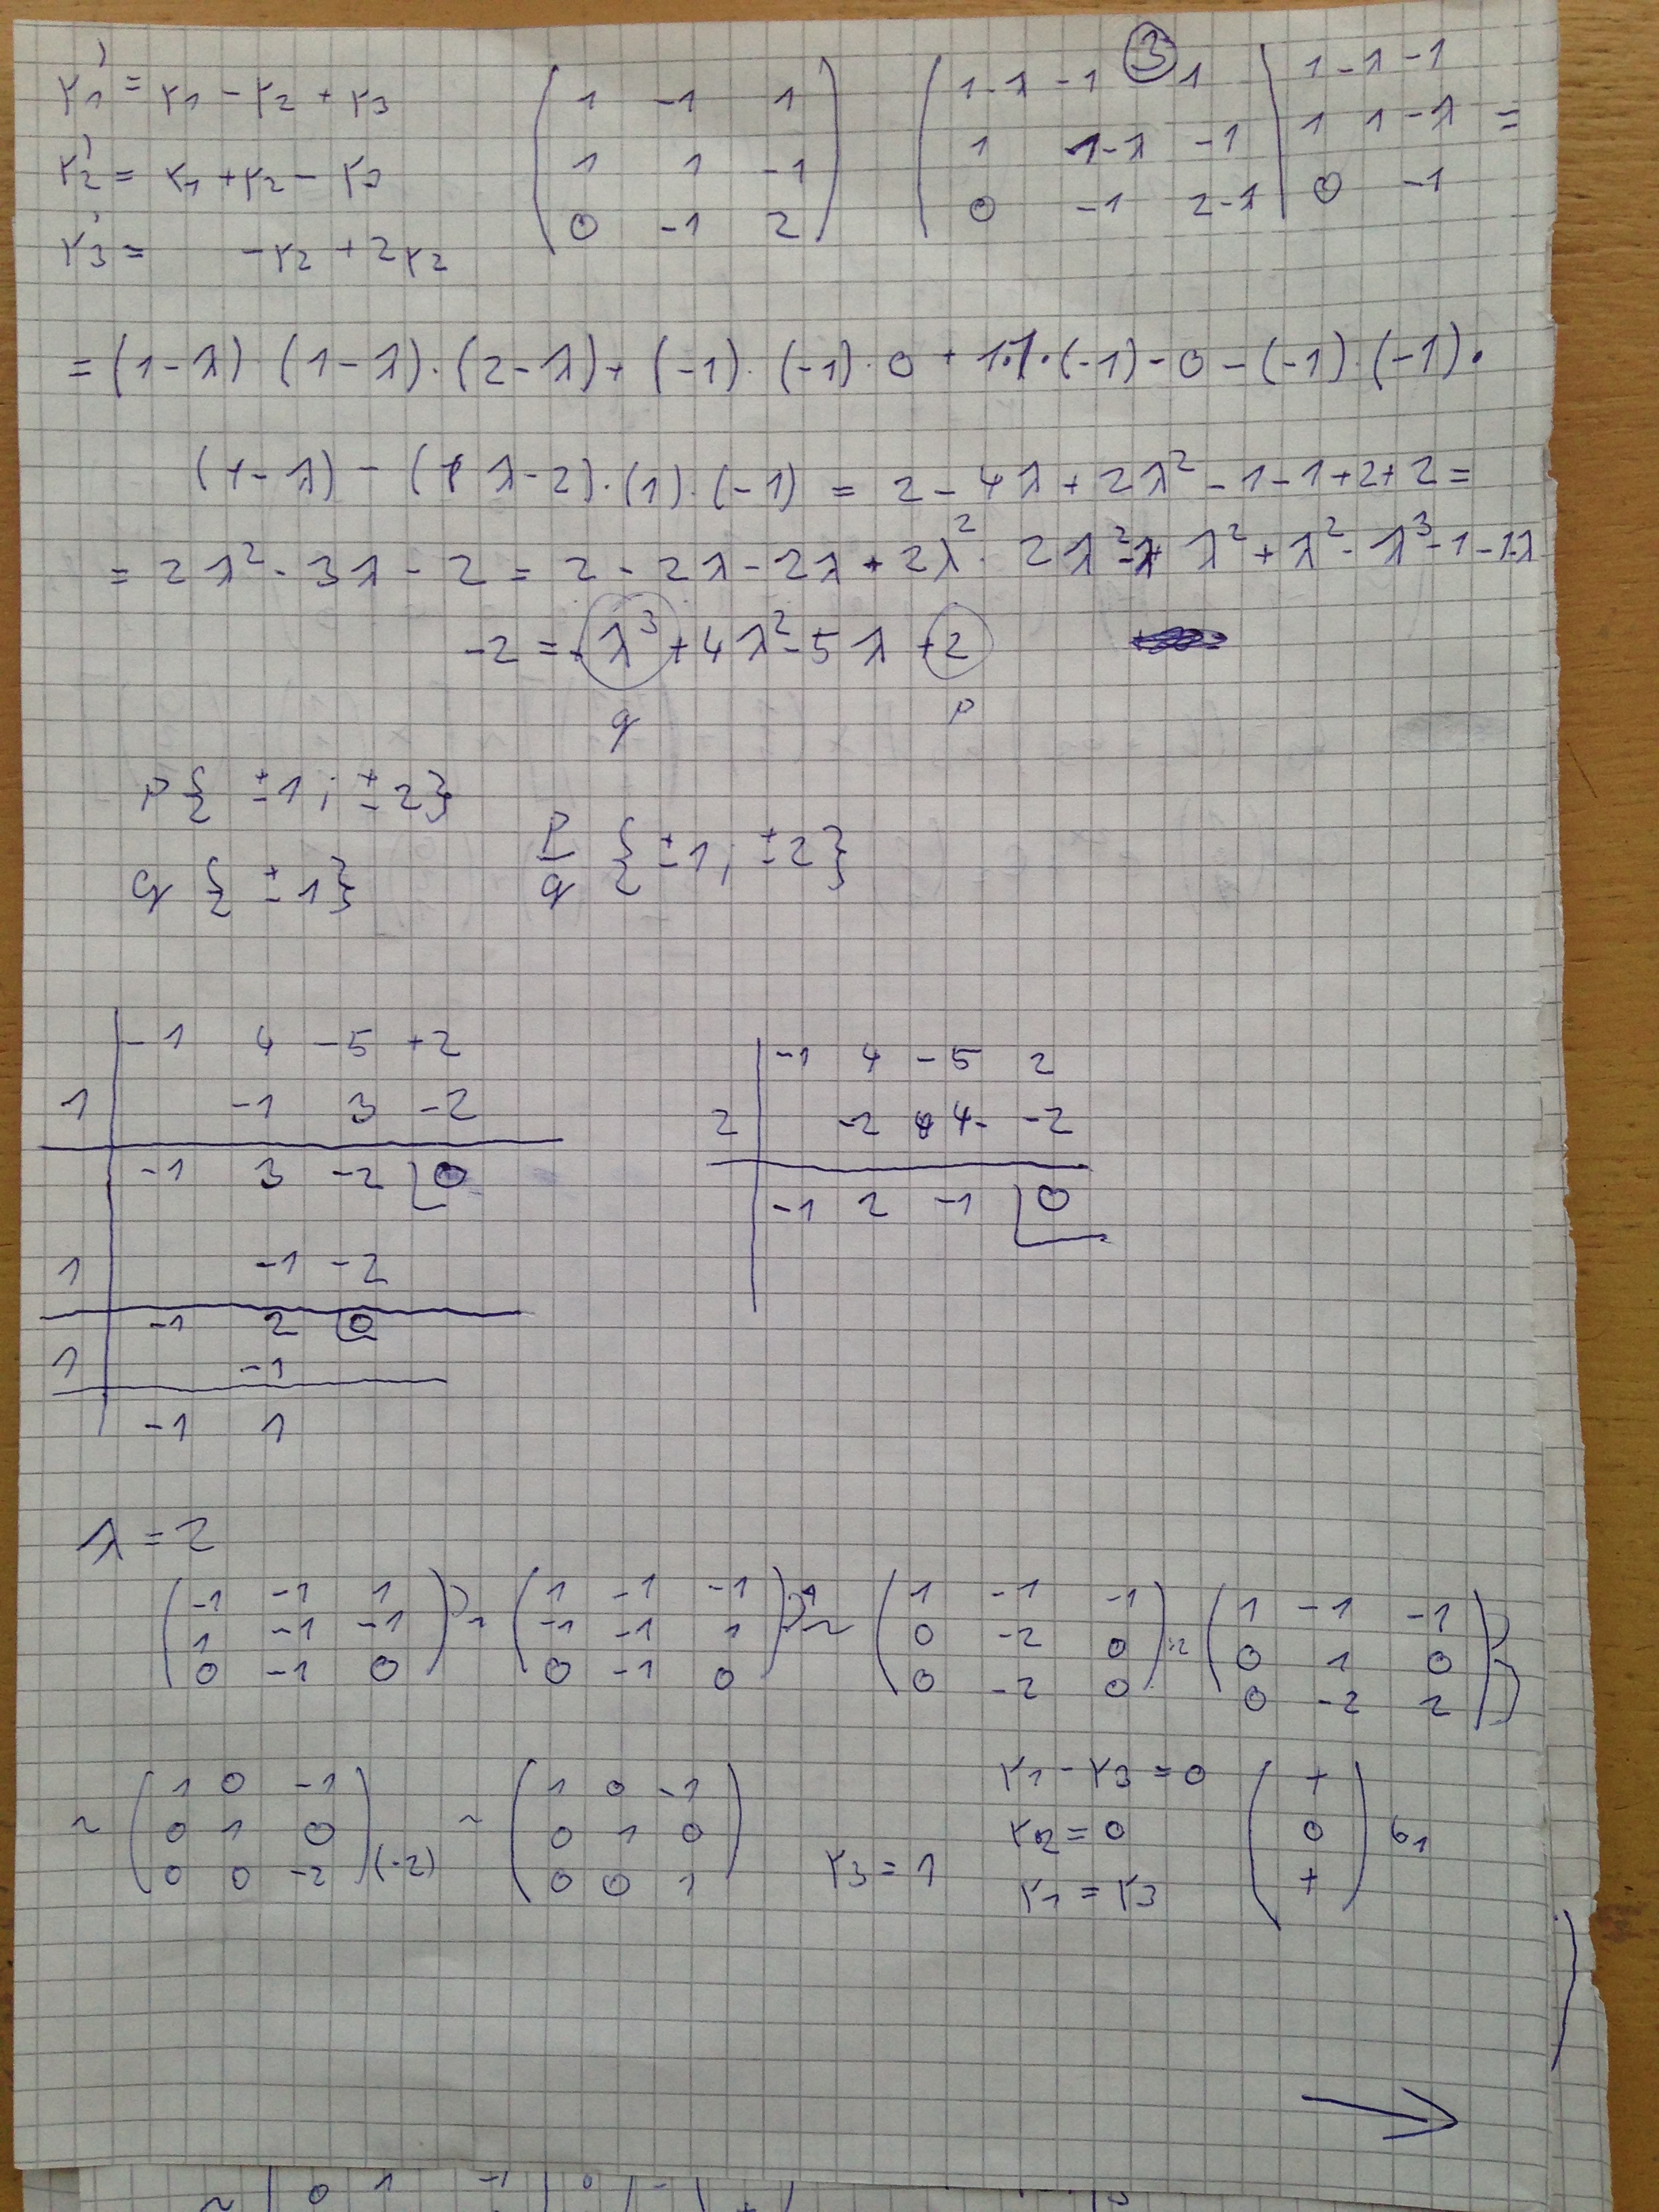 ③
r₁' = r₁ - r₂ + r₃
r₂' = r₁ + r₂ - r₃
r₃' = -r₂ + 2r₂
( 1 -1 1
1 1 -1
0 -1 2 )
| 1-λ -1 1 | 1-λ -1
1 1-λ -1 | 1 1-λ =
0 -1 2-λ | 0 -1
= (1-λ) (1-λ)·(2-λ) + (-1)·(-1)·0 + 1·1·(-1) - 0 - (-1)·(-1)·
(1-λ) - (λ-2)·(1)·(-1) = 2 - 4λ + 2λ² - 1 - 1 + 2 + 2 =
= 2λ² - 3λ - 2 = 2 - 2λ - 2λ + 2λ² · 2λ² λ² + λ² - λ³ - 1 - 1 λ
-2 = -λ³ + 4λ² - 5λ + 2
q p
p { ±1; ±2}
q { ±1}
p/q { ±1; ±2}
-1 4 -5 +2
1 -1 3 -2
-1 3 -2 0
1 -1 -2
-1 2 0
1 -1
-1 1
-1 4 -5 2
2 -2 4 -2
-1 2 -1 0
λ = 2
( -1 -1 1
1 -1 -1
0 -1 0 ) ~
( 1 -1 -1
-1 -1 1
0 -1 0 ) ~
( 1 -1 -1
0 -2 0
0 -2 0 ) :2
( 1 -1 -1
0 1 0
0 -2 2 )
~ ( 1 0 -1
0 1 0
0 0 -2 ) (-2)
~ ( 1 0 -1
0 1 0
0 0 1 )
r₃ = 1
r₁ - r₃ = 0
r₂ = 0
r₁ = r₃
( t
0
t ) b₁
→
~ 0 1 -1 0